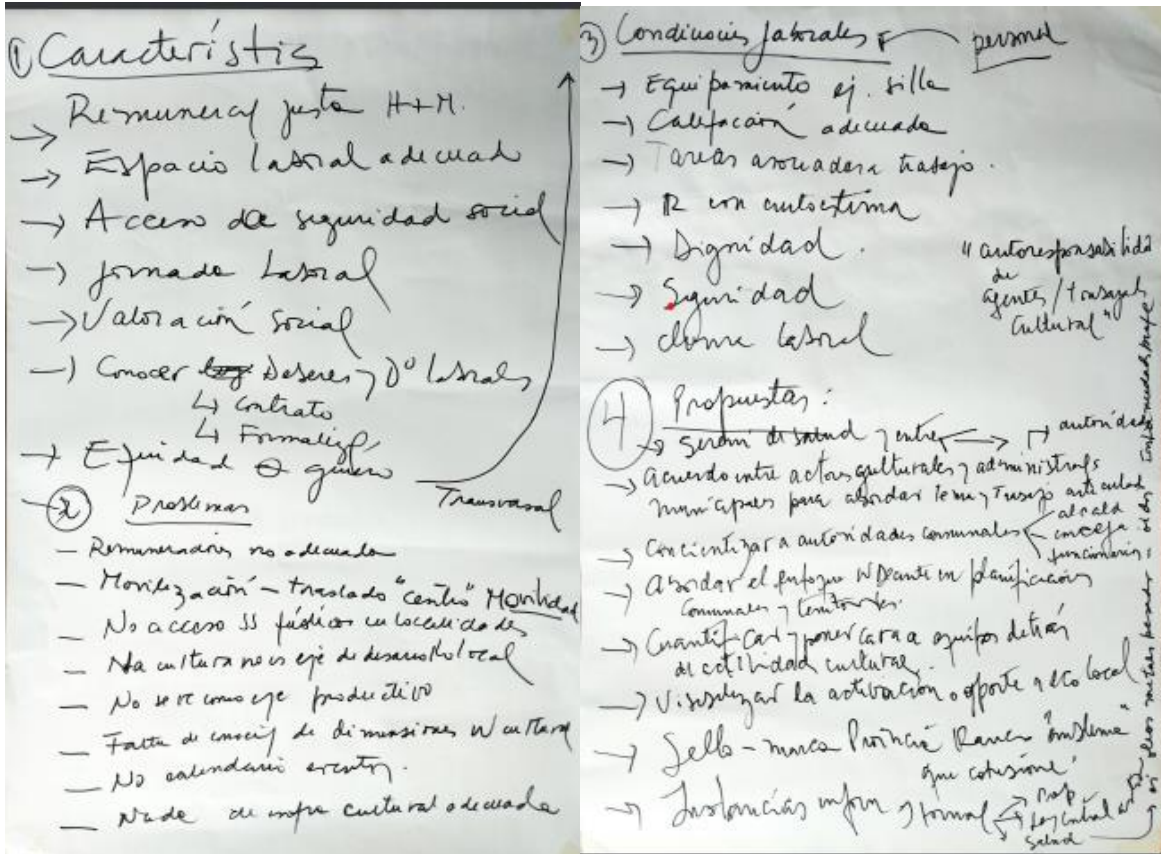 ① Característic
→ Remunerac justa H+M.
→ Espacio laboral adecuad
→ Acceso de seguridad social
→ Jornada Laboral
→ Valoración social
→ Conocer Deberes y Dº laborales
↳ Contrato
↳ Formaliz
→ Equidad género
Transversal
② Problemas
— Remuneraciones no adecuada
— Movilización – traslado "centro" Movilidad
— No acceso SS públicos en localidades
— La cultura no es eje de desarrollo local
— No se ve como eje productivo
— Falta de de dimensiones W cultura
— No calendario eventos.
— Nada de infra cultural adecuada
③ Condiciones laborales ← personal
→ Equipamiento ej. silla
→ Calefacción adecuada
→ Tareas asociadas a trabajo.
→ R con autoestima
→ Dignidad.
→ Seguridad
→ clima laboral
"autoresponsabilida
de
agentes / trabajad
Cultural"
④ Propuestas:
→ Seremi de salud y entre autoridad
→ Acuerdo entre actores culturales y administrat
municipales para abordar tema y trabajo articulad
→ Concientizar a autoridades comunales
alcald
conceja
funcionarios
→ Abordar el enfoque W Decente en planificación
Comunales y territoriales.
→ Cuantificar y poner cara a equipos detrás
de actividad cultural.
→ Visibilizar la activación o aporte a eco local
→ Sello – marca Provincia Ranco "emblema"
que cohesione
→ Instancias inform y formal
Salud